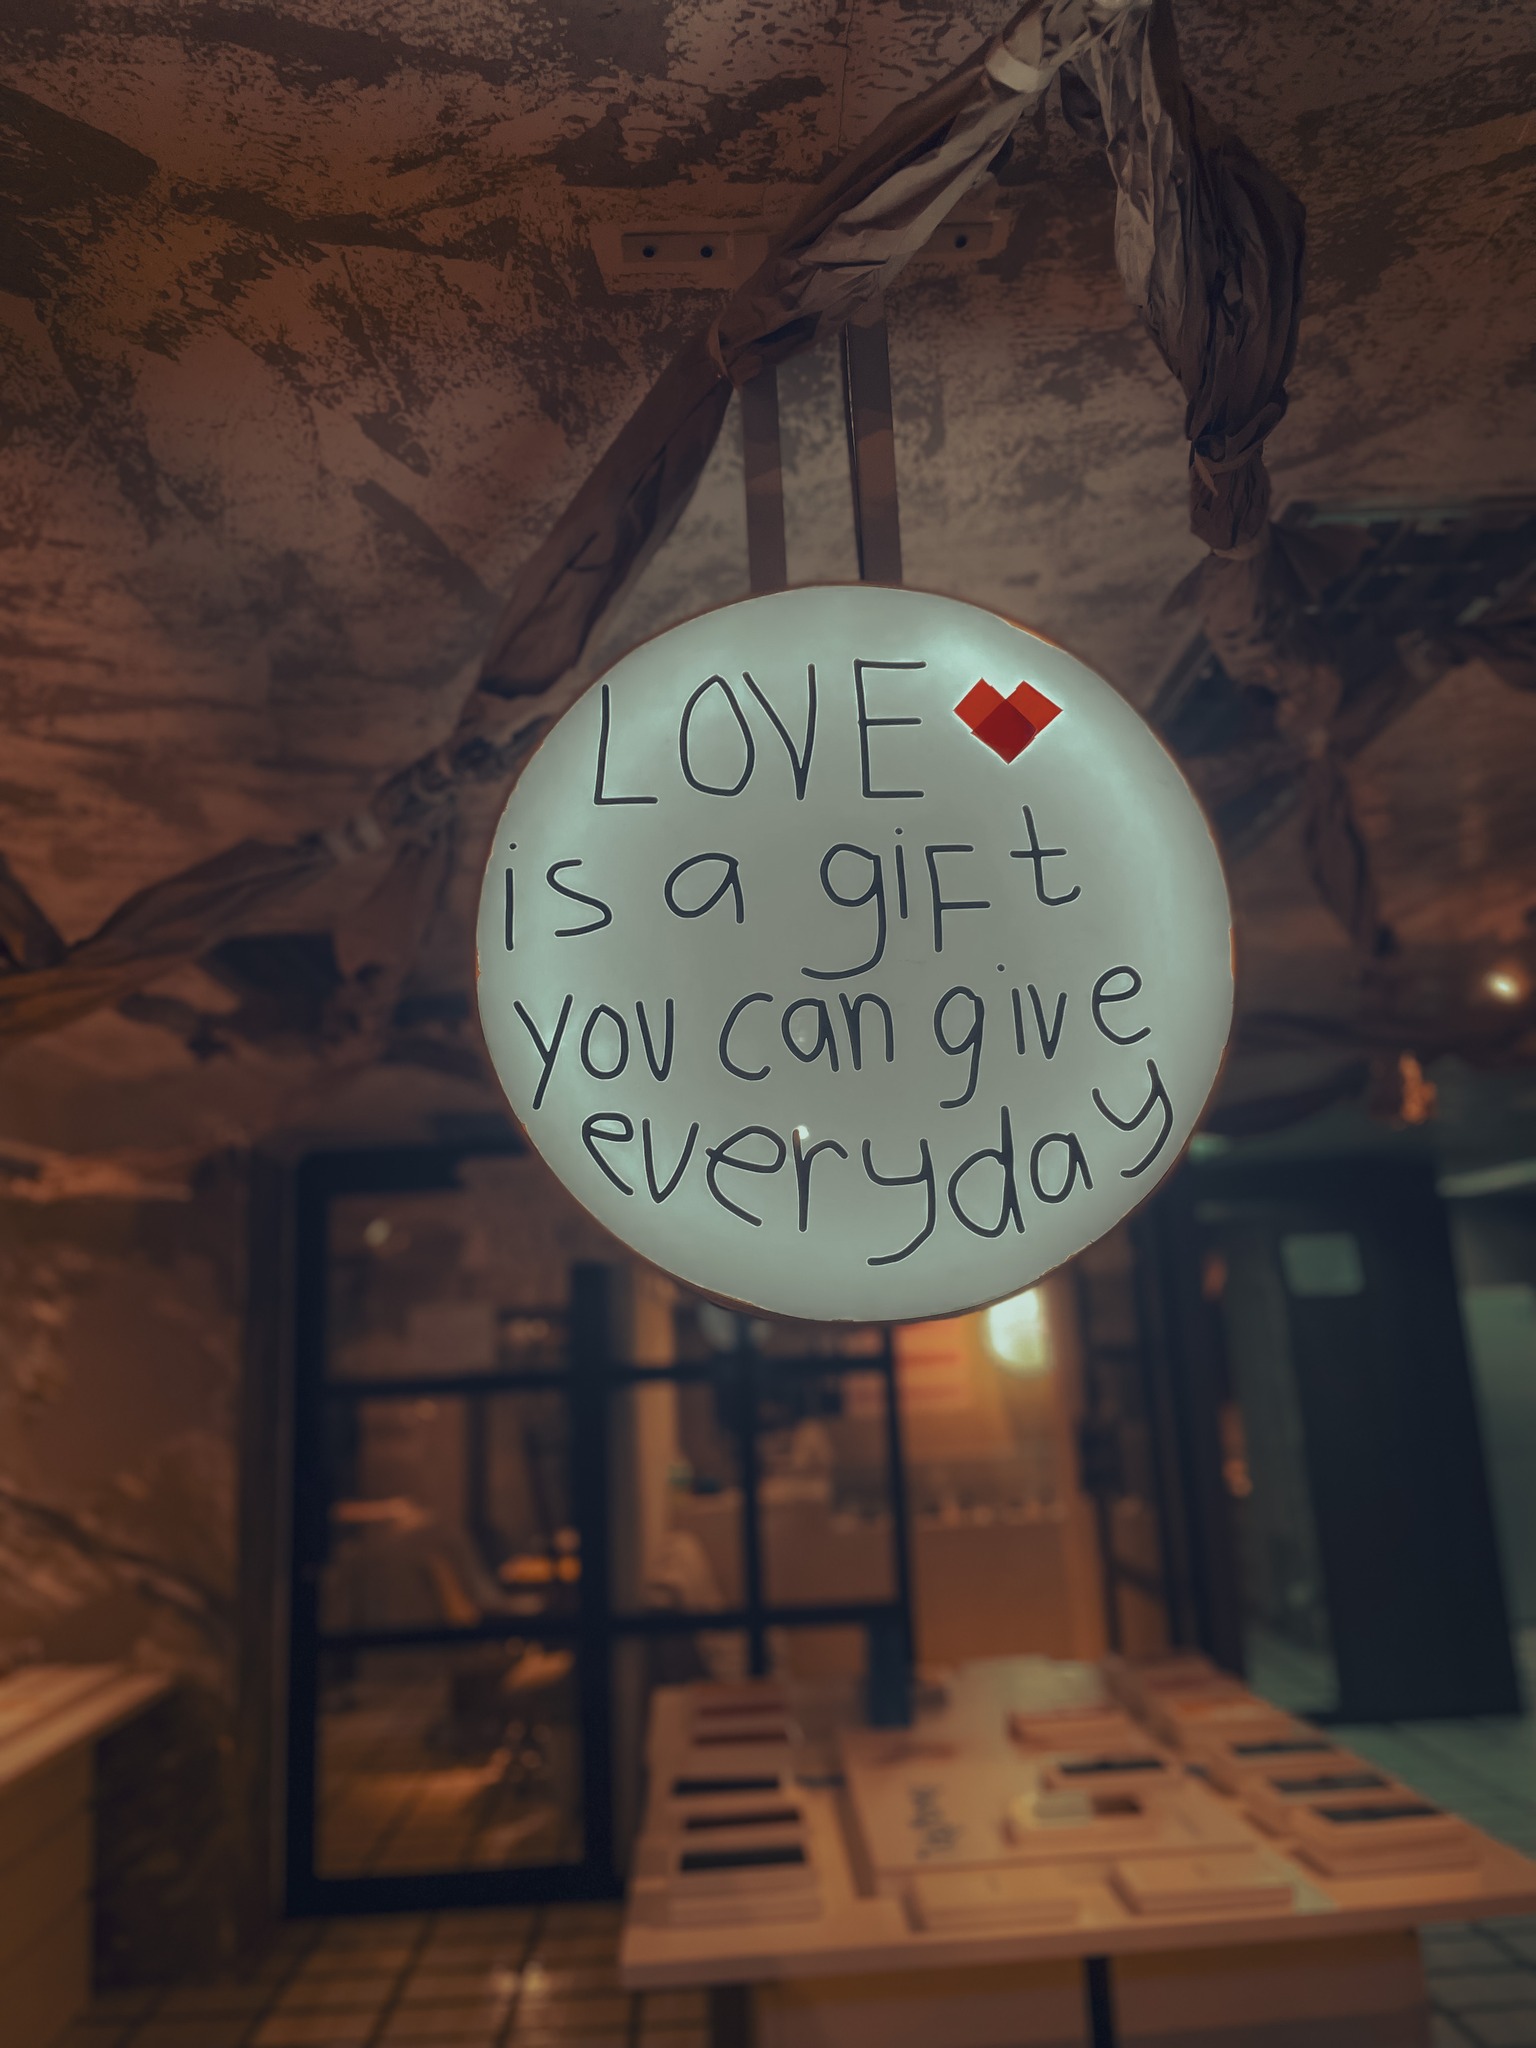 LOVE
is a giFt
you can give
everyday